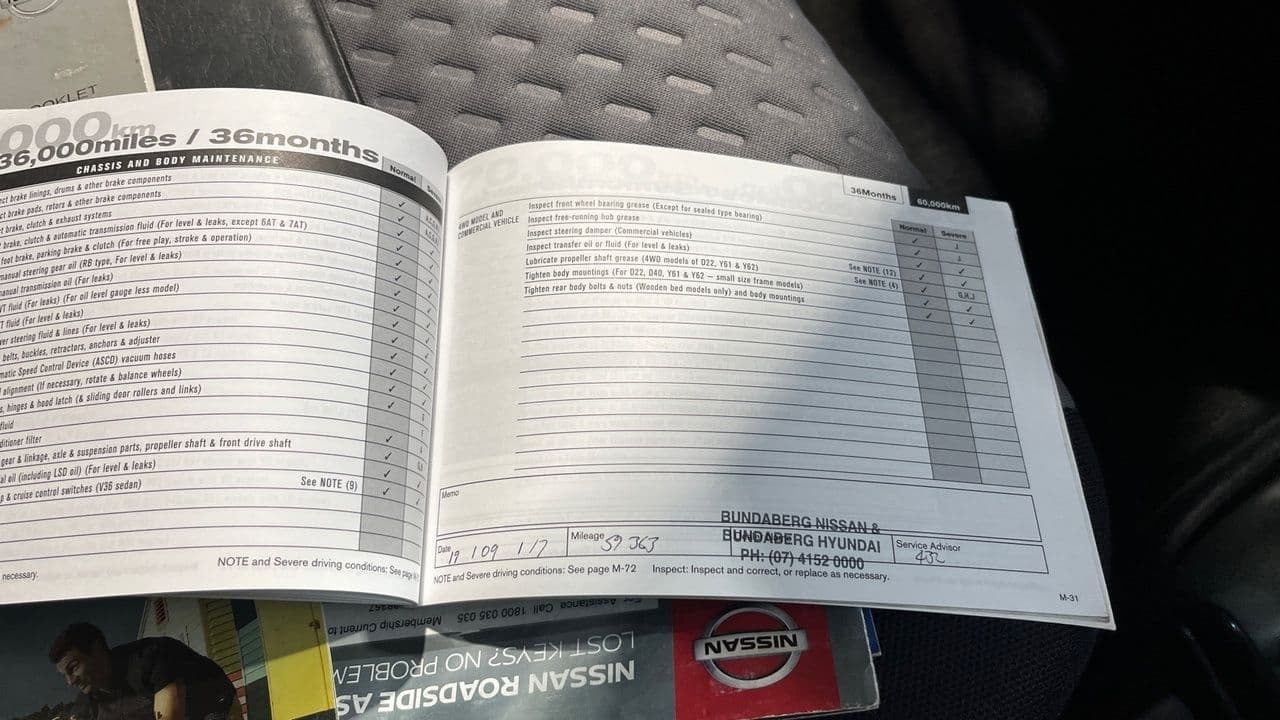 OOKLET
000km
36,000miles / 36months
CHASSIS AND BODY MAINTENANCE
Normal
brake linings, drums & other brake components
brake pads, rotors & other brake components
brake, clutch & exhaust systems
brake, clutch & automatic transmission fluid (For level & leaks, except 6AT & 7AT)
foot brake, parking brake & clutch (For free play, stroke & operation)
manual steering gear oil (RB type, For level & leaks)
manual transmission oil (For leaks)
fluid (For leaks) (For oil level gauge less model)
fluid (For level & leaks)
steering fluid & lines (For level & leaks)
belts, buckles, retractors, anchors & adjuster
Speed Control Device (ASCD) vacuum hoses
alignment (If necessary, rotate & balance wheels)
hinges & hood latch (& sliding door rollers and links)
fluid
filter
gear & linkage, axle & suspension parts, propeller shaft & front drive shaft
oil (including LSD oil) (For level & leaks)
& cruise control switches (V36 sedan) See NOTE (9)
necessary.
NOTE and Severe driving conditions: See page
36Months 60,000km
Normal Severe
4WD MODEL AND COMMERCIAL VEHICLE
Inspect front wheel bearing grease (Except for sealed type bearing)
Inspect free-running hub grease
Inspect steering damper (Commercial vehicles)
Inspect transfer oil or fluid (For level & leaks)
Lubricate propeller shaft grease (4WD models of D22, Y61 & Y62) See NOTE (12)
Tighten body mountings (For D22, D40, Y61 & Y62 – small size frame models) See NOTE (4)
Tighten rear body bolts & nuts (Wooden bed models only) and body mountings
G,H,J
Memo
Date 19 / 09 / 17
Mileage 59 363
BUNDABERG NISSAN &
BUNDABERG HYUNDAI
PH: (07) 4152 0000
Service Advisor
NOTE and Severe driving conditions: See page M-72 Inspect: Inspect and correct, or replace as necessary.
M-31
Assistance Call 1800 035 035
Membership Current to
LOST KEYS? NO PROBLEM
NISSAN ROADSIDE AS
NISSAN